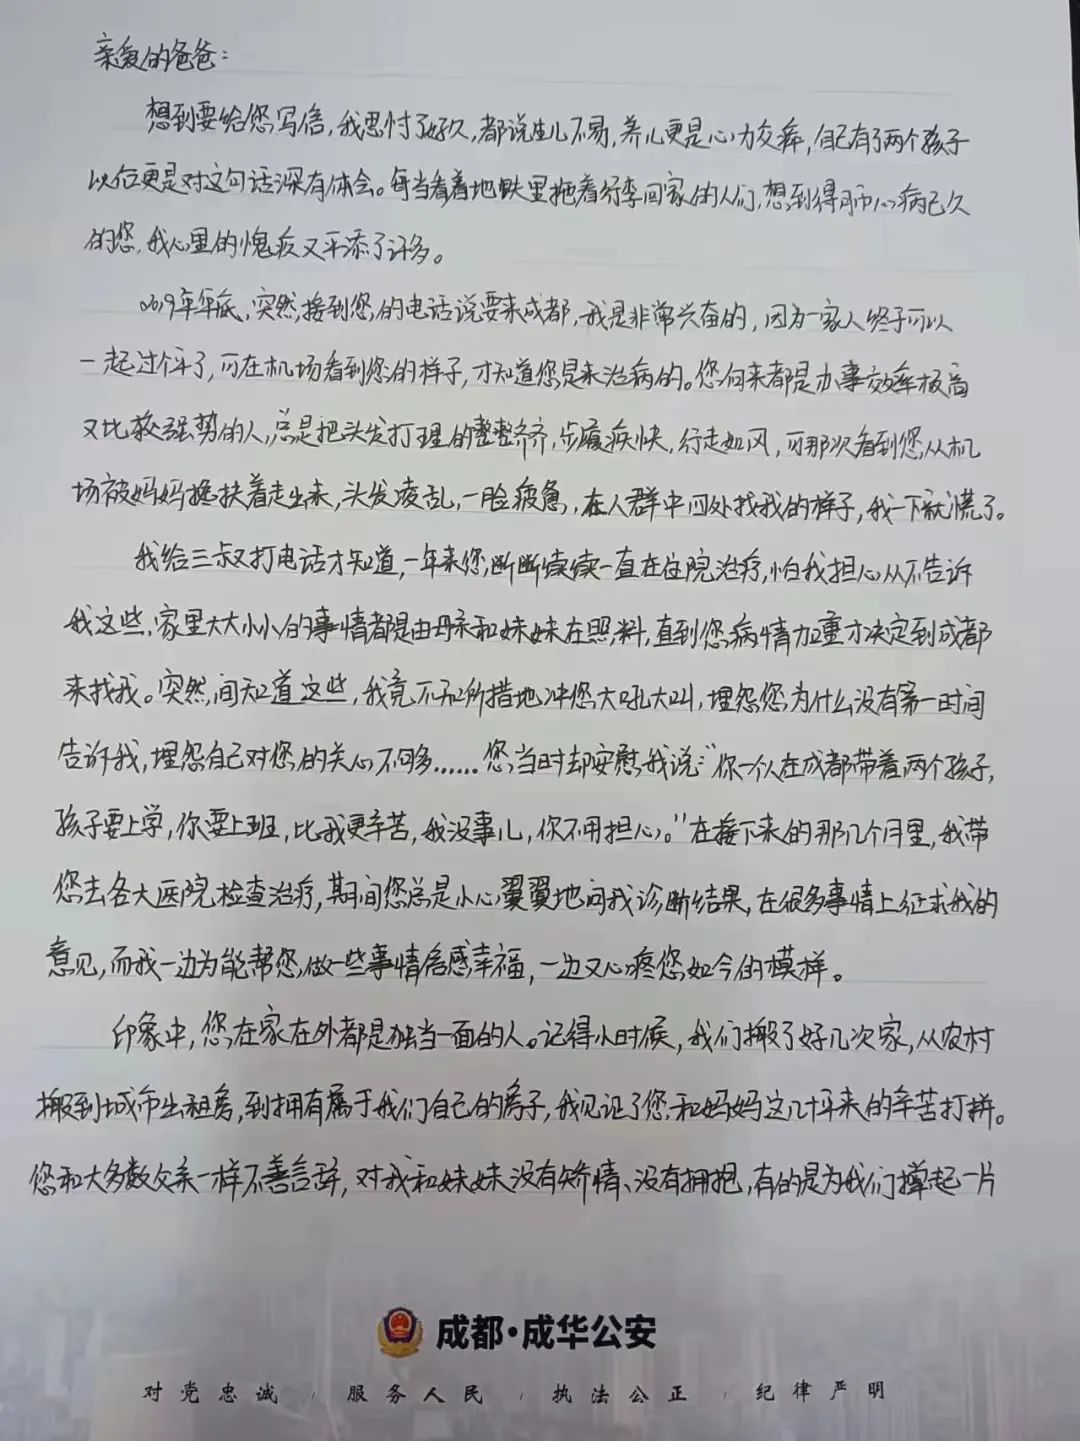 亲爱的爸爸：
想到要给您写信，我思忖了好久，都说生儿不易，养儿更是心力交瘁，自己有了两个孩子
以后更是对这句话深有体会。每当看着地铁里拖着行李回家的人们，想到得肺心病已久
的您，我心里的愧疚又平添了许多。
2019年年底，突然接到您的电话说要来成都，我是非常兴奋的，因为一家人终于可以
一起过个年了，可在机场看到您的样子，才知道您是来治病的。您向来都是办事效率极高
又比较强势的人，总是把头发打理的整整齐齐，步履疾快，行走如风，可那次看到您从机
场被妈妈搀扶着走出来，头发凌乱，一脸疲惫，在人群中四处找我的样子，我一下就慌了。
我给三叔打电话才知道，一年来您断断续续一直在住院治疗，怕我担心从不告诉
我这些，家里大大小小的事情都是由母亲和妹妹在照料，直到您病情加重才决定到成都
来找我。突然间知道这些，我竟不知所措地冲您大吼大叫，埋怨您为什么没有第一时间
告诉我，埋怨自己对您的关心不够多……您当时却安慰我说：“你一个人在成都带着两个孩子，
孩子要上学，你要上班，比我更辛苦，我没事儿，你不用担心。”在接下来的那几个月里，我带
您去各大医院检查治疗，期间您总是小心翼翼地问我诊断结果，在很多事情上征求我的
意见，而我一边为能帮您做一些事情倍感幸福，一边又心疼您如今的模样。
印象中，您在家在外都是独当一面的人。记得小时候，我们搬了好几次家，从农村
搬到城市出租房，到拥有属于我们自己的房子，我见证了您和妈妈这几十年来的辛苦打拼。
您和大多数父亲一样不善言辞，对我和妹妹没有矫情、没有拥抱，有的是为我们撑起一片
成都·成华公安
对党忠诚 服务人民 执法公正 纪律严明